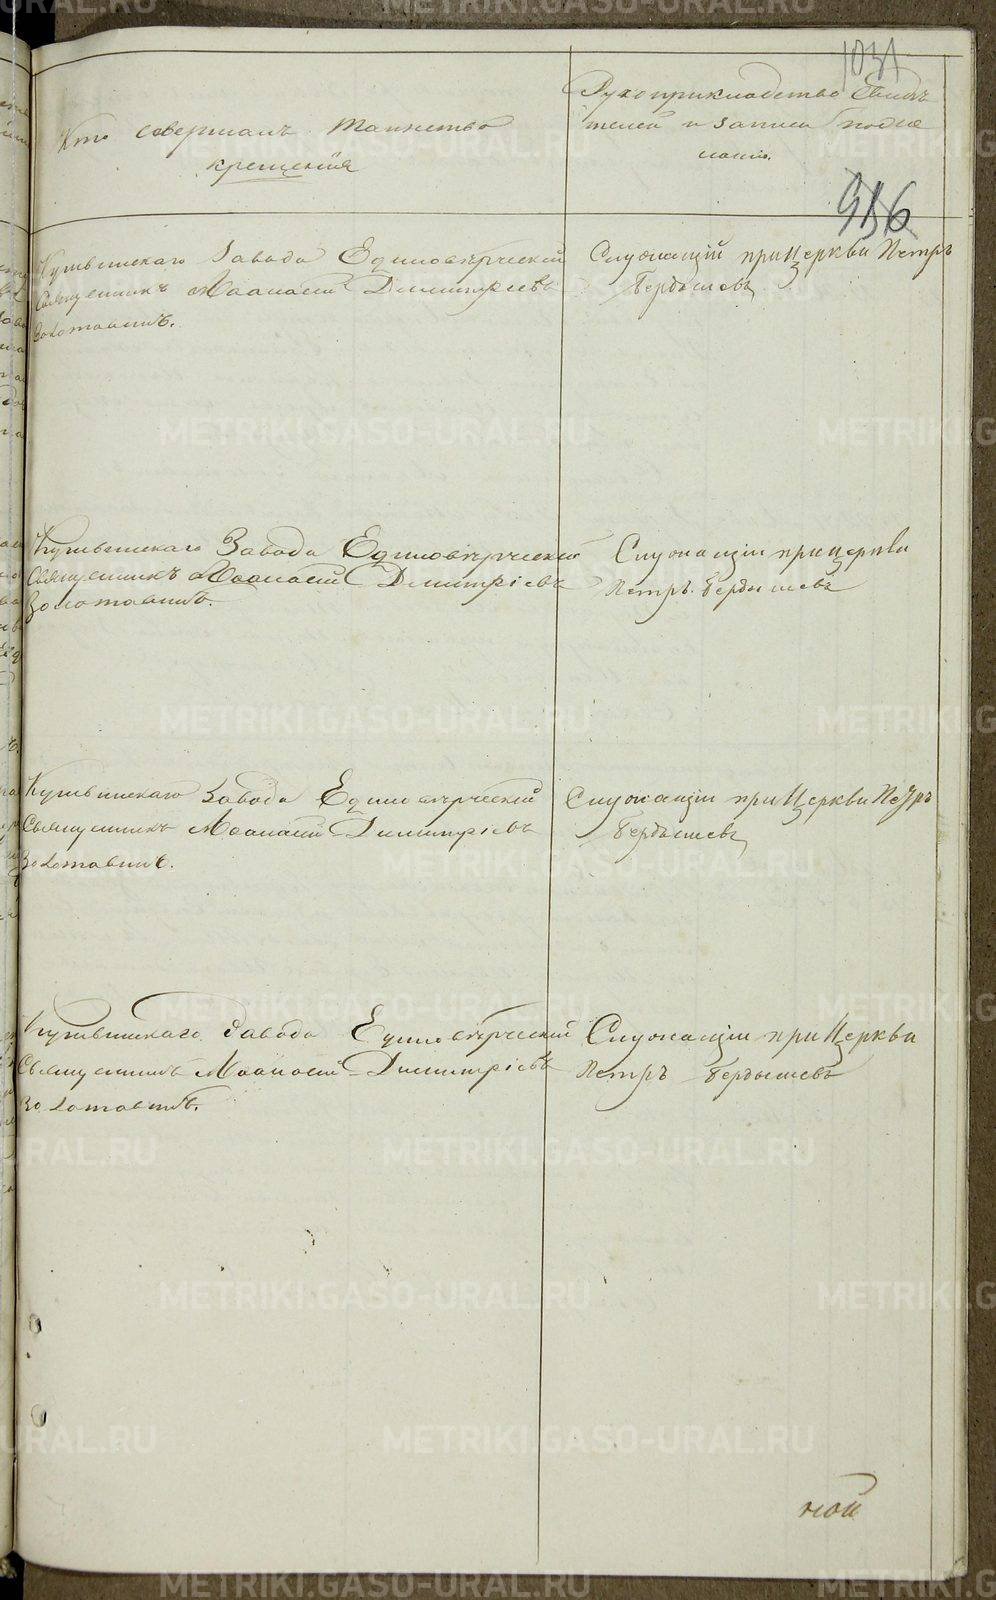 1031
Кто совершалъ таинство
крещенія
Рукоприкладство свидѣ
телей и записи по жела
нію.
936
Кушвинскаго Завода Единовѣрческій
Священникъ Аѳанасій Димитріевъ
Золотавинъ.
Служащій при Церкви Петръ
Бердышевъ
Кушвинскаго Завода Единовѣрческій
Священникъ Аѳанасій Димитріевъ
Золотавинъ.
Служащій при церкви
Петръ Бердышевъ
Кушвинскаго Завода Единовѣрческій
Священникъ Аѳанасій Димитріевъ
Золотавинъ.
Служащій при Церкви Петръ
Бердышевъ
Кушвинскаго Завода Единовѣрческій
Священникъ Аѳанасій Димитріевъ
Золотавинъ.
Служащій при Церкви
Петръ Бердышевъ
ной
METRIKI.GASO-URAL.RU